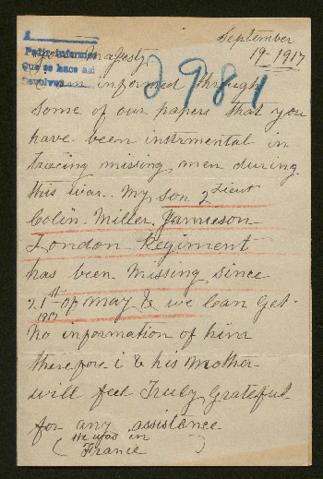 September
19-1917
A
Pedir informes
Que se hace así
Devolver
Your Majesty
2981
I am informed through
some of our papers that you
have been instrmental in
tracing missing men during
this war. My son 2 Lieut
Colin Miller Jamieson
London Regiment
has been missing since
21st of May & we can get
1917
no information of him
therefore i & his Mother
will feel Truly Grateful
for any assistance
(He was in
France)